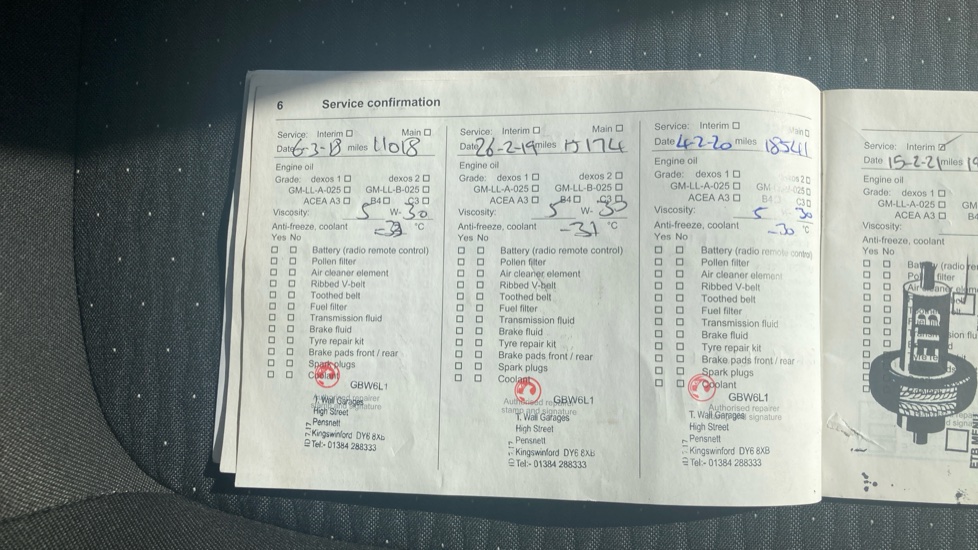 6 Service confirmation
Service: Interim Main
Date 6-3-18 miles 11018
Engine oil
Grade: dexos 1 dexos 2
GM-LL-A-025 GM-LL-B-025
ACEA A3 B4 C3
Viscosity: 5 W- 30
Anti-freeze, coolant °C
Yes No
Battery (radio remote control)
Pollen filter
Air cleaner element
Ribbed V-belt
Toothed belt
Fuel filter
Transmission fluid
Brake fluid
Tyre repair kit
Brake pads front / rear
Spark plugs
Coolant
GBW6L1
T. Wall Garages
High Street
Pensnett
Kingswinford DY6 8XB
Tel:- 01384 288333
Service: Interim Main
Date 26-2-19 miles 15174
Engine oil
Grade: dexos 1 dexos 2
GM-LL-A-025 GM-LL-B-025
ACEA A3 B4 C3
Viscosity: 5 W- 30
Anti-freeze, coolant -31 °C
Yes No
Battery (radio remote control)
Pollen filter
Air cleaner element
Ribbed V-belt
Toothed belt
Fuel filter
Transmission fluid
Brake fluid
Tyre repair kit
Brake pads front / rear
Spark plugs
Coolant
GBW6L1
Authorised repairer
stamp and signature
T. Wall Garages
High Street
Pensnett
Kingswinford DY6 8XB
Tel:- 01384 288333
Service: Interim Main
Date 4-2-20 miles 18541
Engine oil
Grade: dexos 1 dexos 2
GM-LL-A-025 GM -025
ACEA A3 B4 C3
Viscosity: 5 W- 30
Anti-freeze, coolant -30 °C
Yes No
Battery (radio remote control)
Pollen filter
Air cleaner element
Ribbed V-belt
Toothed belt
Fuel filter
Transmission fluid
Brake fluid
Tyre repair kit
Brake pads front / rear
Spark plugs
Coolant
GBW6L1
Authorised repairer
signature
T. Wall Garages
High Street
Pensnett
Kingswinford DY6 8XB
Tel:- 01384 288333
Service: Interim
Date 15-2-21 miles
Engine oil
Grade: dexos 1
GM-LL-A-025 GM
ACEA A3 B
Viscosity:
Anti-freeze, coolant
Yes No
filter
ETB